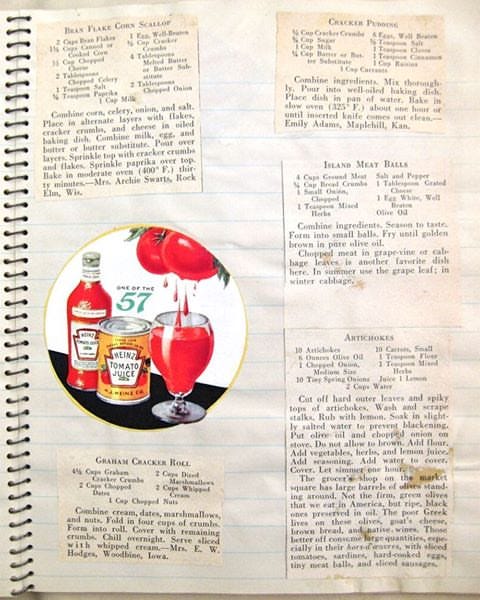 BRAN FLAKE CORN SCALLOP
2 Cups Bran Flakes
Cups Canned or
Cooked Corn
½ Cup Chopped
Cheese
2 Tablespoons
Chopped Celery
1 Teaspoon Salt
Teaspoon Paprika
1 Egg, Well-Beaten
Cup Cracker
Crumbs
4 Tablespoons
Melted Butter
or Butter Sub-
stitute
2 Tablespoons
Chopped Onion
1 Cup Milk
Combine corn, celery, onion, and salt.
Place in alternate layers with flakes,
cracker crumbs, and cheese in oiled
baking dish. Combine milk, egg, and
butter or butter substitute. Pour over
layers. Sprinkle top with cracker crumbs
and flakes. Sprinkle paprika over top.
Bake in moderate oven (400° F.) thir-
ty minutes.—Mrs. Archie Swarts, Rock
Elm, Wis.
ONE OF THE
57
HEINZ
TOMATO JUICE
HEINZ
TOMATO
JUICE
H.J. HEINZ CO.
GRAHAM CRACKER ROLL
4½ Cups Graham
Cracker Crumbs
2 Cups Chopped
Dates
2 Cups Diced
Marshmallows
2 Cups Whipped
Cream
1 Cup Chopped Nuts
Combine cream, dates, marshmallows,
and nuts. Fold in four cups of crumbs.
Form into roll. Cover with remaining
crumbs. Chill overnight. Serve sliced
with whipped cream.—Mrs. E. W.
Hodges, Woodbine, Iowa.
CRACKER PUDDING
Cup Cracker Crumbs
Cup Sugar
1 Cup Milk
Cup Butter or But-
ter Substitute
6 Eggs, Well-Beaten
Teaspoon Salt
Teaspoon Cloves
1 Teaspoon Cinnamon
1 Cup Raisins
1 Cup Currants
Combine ingredients. Mix thorough-
ly. Pour into well-oiled baking dish.
Place dish in pan of water. Bake in
slow oven (325° F.) about one hour or
until inserted knife comes out clean.—
Emily Adams, Maplehill, Kan.
ISLAND MEAT BALLS
4 Cups Ground Meat
Cup Bread Crumbs
1 Small Onion,
Chopped
1 Teaspoon Mixed
Herbs
Salt and Pepper
1 Tablespoon Grated
Cheese
1 Egg White, Well
Beaten
Olive Oil
Combine ingredients. Season to taste.
Form into small balls. Fry until golden
brown in pure olive oil.
Chopped meat in grape-vine or cab-
bage leaves is another favorite dish
here. In summer use the grape leaf; in
winter cabbage.
ARTICHOKES
10 Artichokes
6 Ounces Olive Oil
1 Chopped Onion,
Medium Size
10 Tiny Spring Onions
10 Carrots, Small
1 Teaspoon Flour
1 Teaspoon Mixed
Herbs
Juice 1 Lemon
2 Cups Water
Cut off hard outer leaves and spiky
tops of artichokes. Wash and scrape
stalks. Rub with lemon. Soak in slight-
ly salted water to prevent blackening.
Put olive oil and chopped onion on
stove. Do not allow to brown. Add flour.
Add vegetables, herbs, and lemon juice.
Add seasoning. Add water to cover.
Cover. Let simmer one hour.
The grocer's shop on the market
square has large barrels of olives stand-
ing around. Not the firm, green olives
that we eat in America, but ripe, black
ones preserved in oil. The poor Greek
lives on these olives, goat's cheese,
brown bread, and native wines. Those
better off consume large quantities, espe-
cially in their hors d'œuvres, with sliced
tomatoes, sardines, hard-cooked eggs,
tiny meat balls, and sliced sausages.